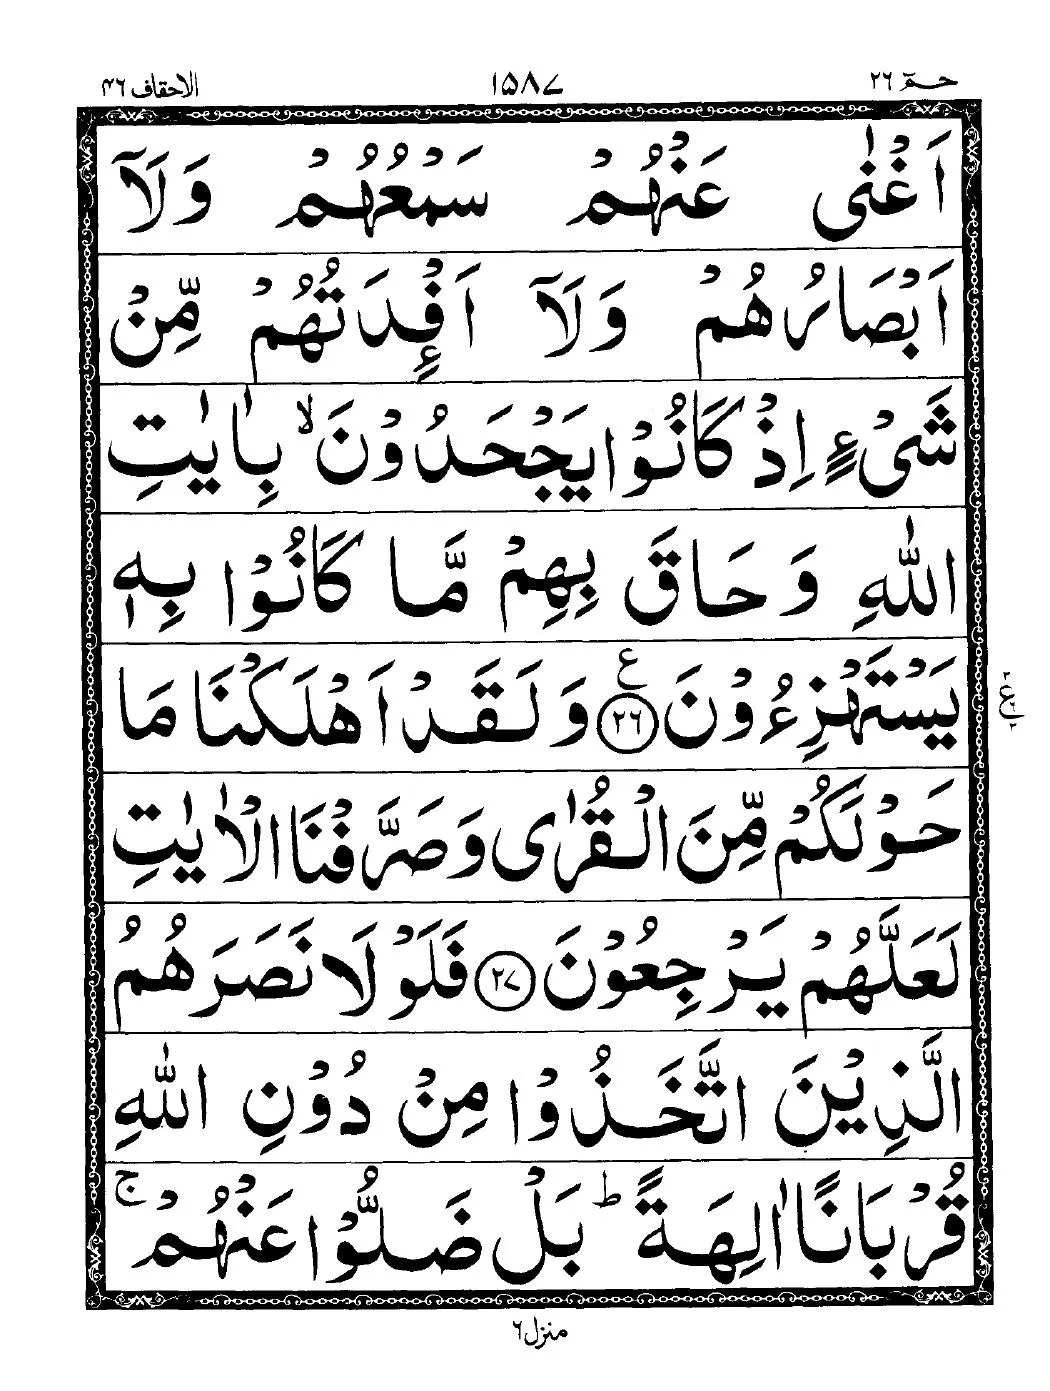 الاحقاف ۴۶ ۱۵۸۷ حٰمٓ ۲۶
اَغْنٰى عَنْهُمْ سَمْعُهُمْ وَلَآ
اَبْصَارُهُمْ وَلَآ اَفْـِٕدَتُهُمْ مِّنْ
شَیْءٍ اِذْ كَانُوْا یَجْحَدُوْنَ ۙ بِاٰیٰتِ
اللّٰهِ وَحَاقَ بِهِمْ مَّا كَانُوْا بِهٖ
یَسْتَهْزِءُوْنَ ۲۶ ع وَلَقَدْ اَهْلَكْنَا مَا
حَوْلَكُمْ مِّنَ الْقُرٰى وَصَرَّفْنَا الْاٰیٰتِ
لَعَلَّهُمْ یَرْجِعُوْنَ ۲۷ فَلَوْ لَا نَصَرَهُمُ
الَّذِیْنَ اتَّخَذُوْا مِنْ دُوْنِ اللّٰهِ
قُرْبَانًا اٰلِهَةً ؕ بَلْ ضَلُّوْا عَنْهُمْ ۚ
منزل ۶